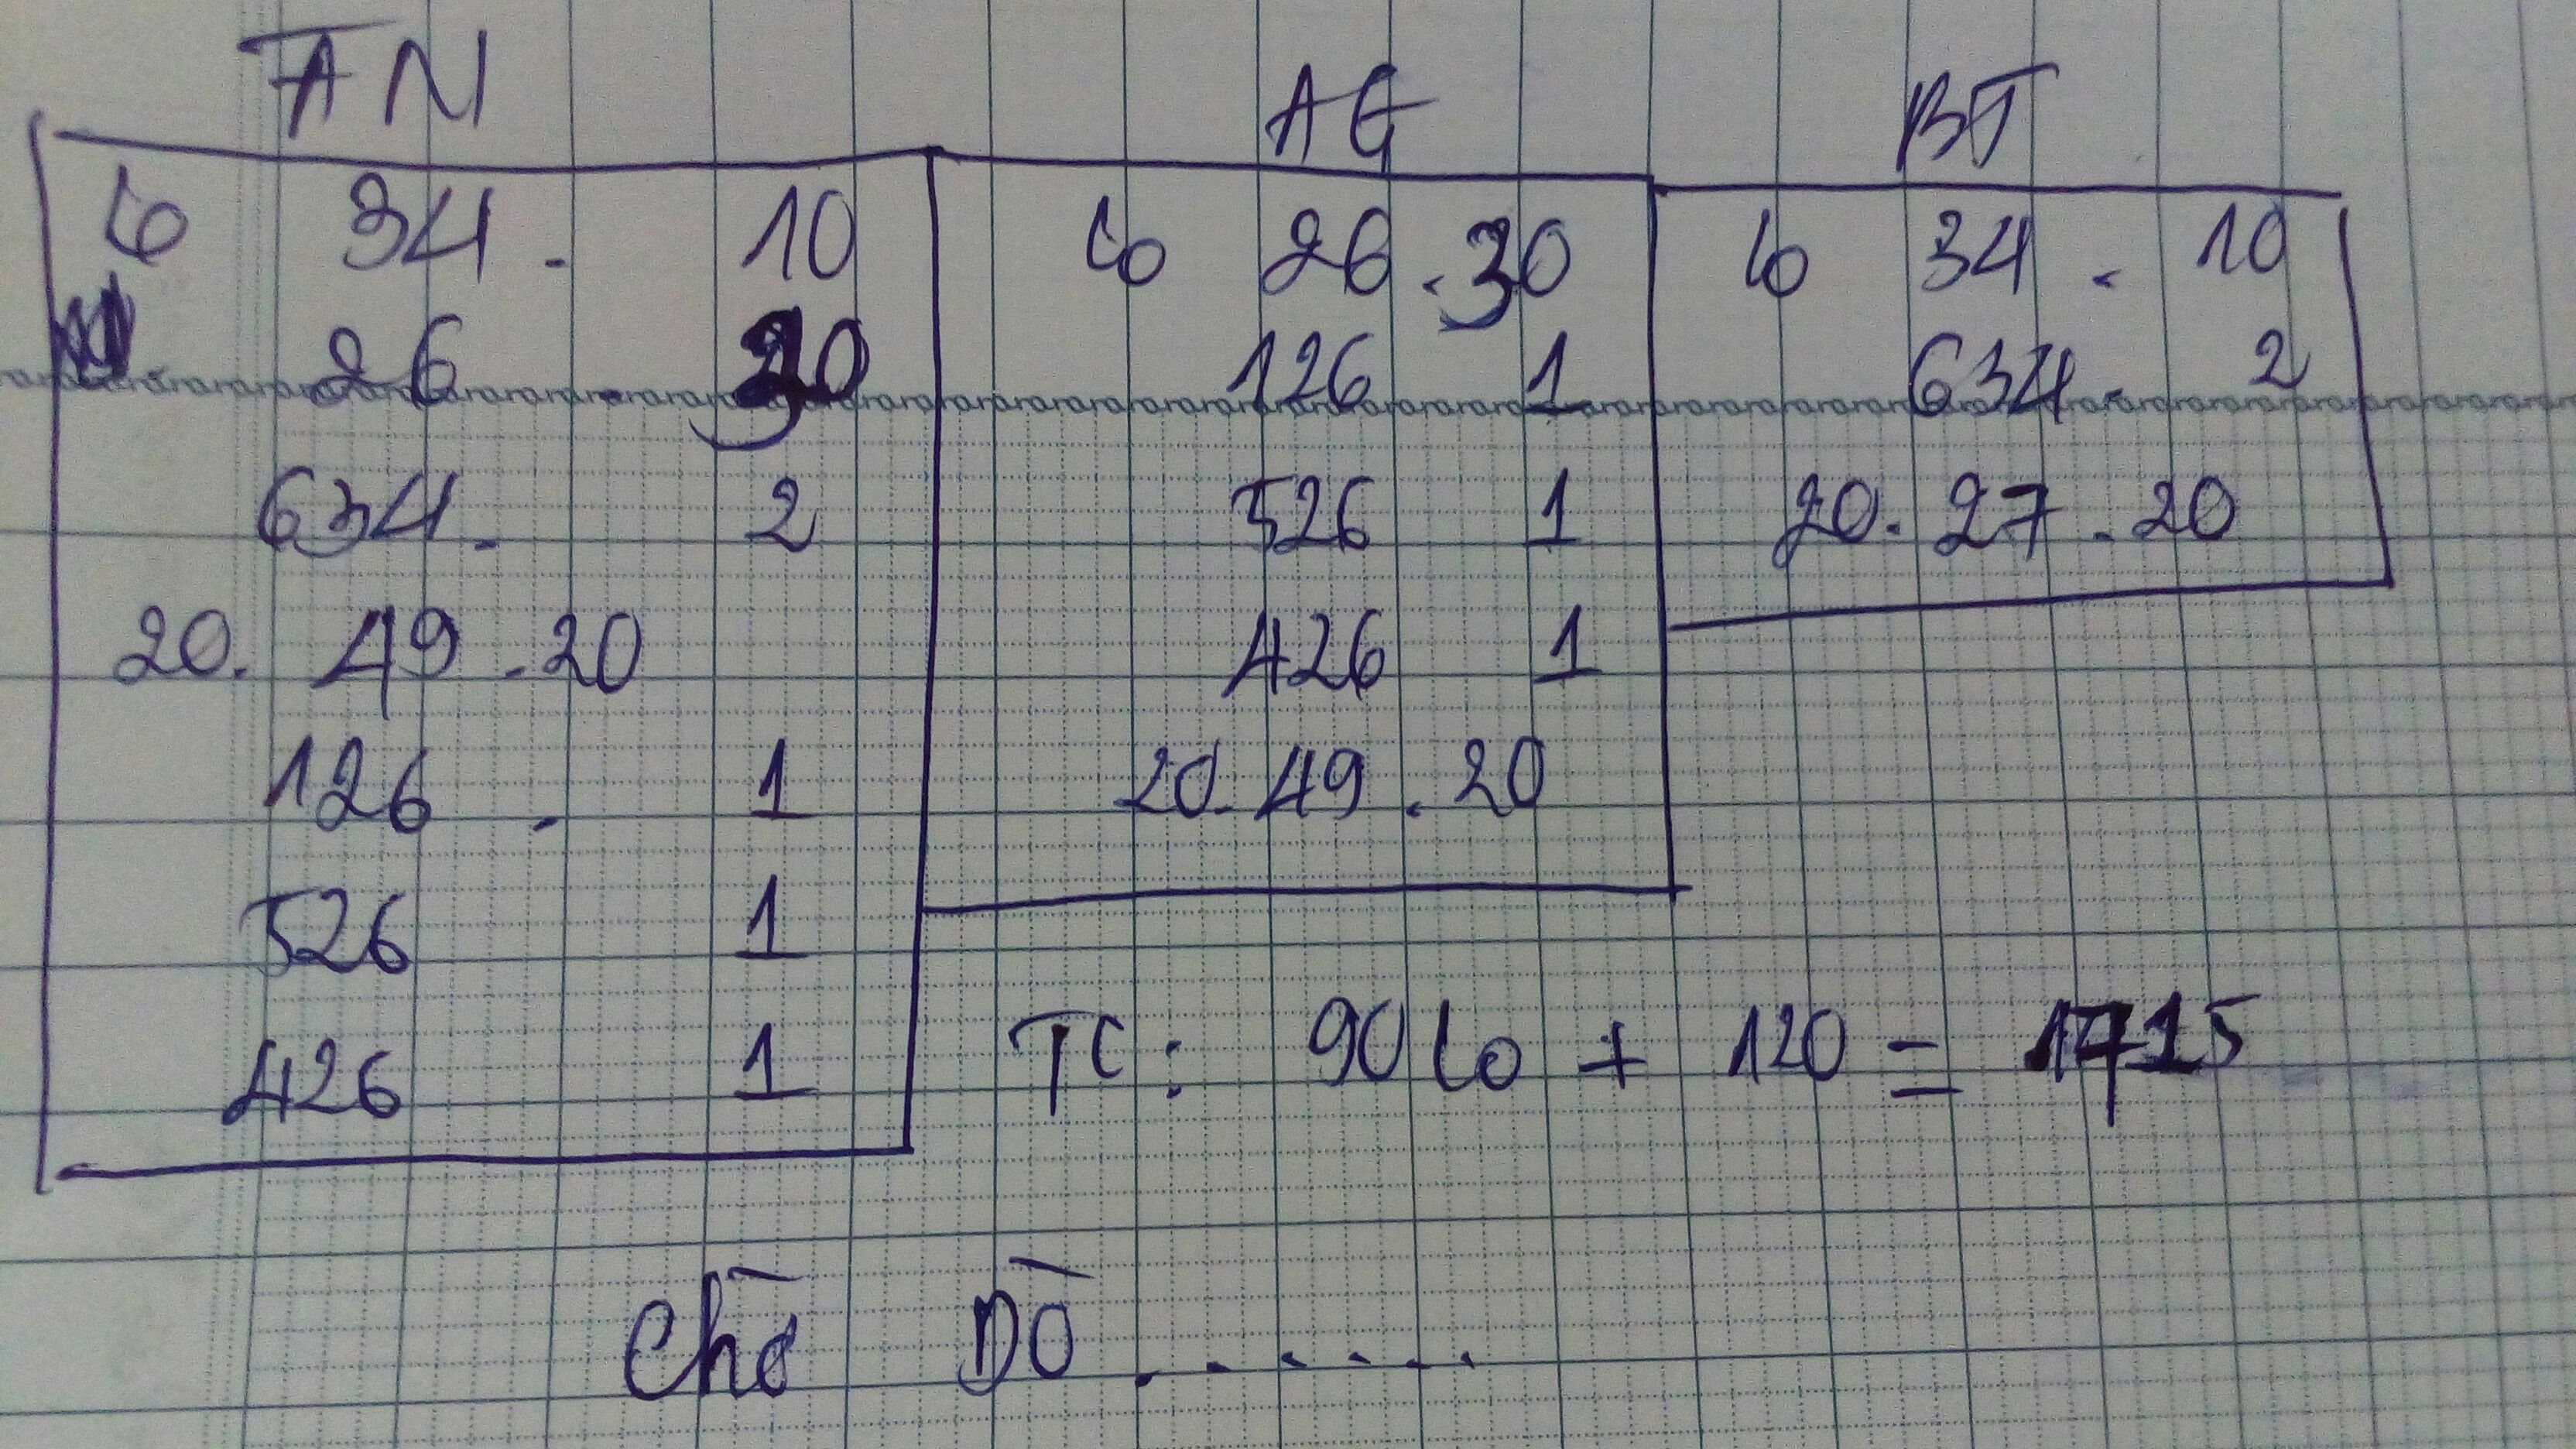 TN
lo 34 . 10
26 . 30
634 . 2
20. 49 .20
126 . 1
526 1
426 1
AG
lo 26 . 30
126 1
526 1
426 1
20. 49 . 20
BT
lo 34 . 10
634 . 2
20. 27 . 20
TC : 90 lo + 120 = 1715
Chờ DÒ . . . . . .